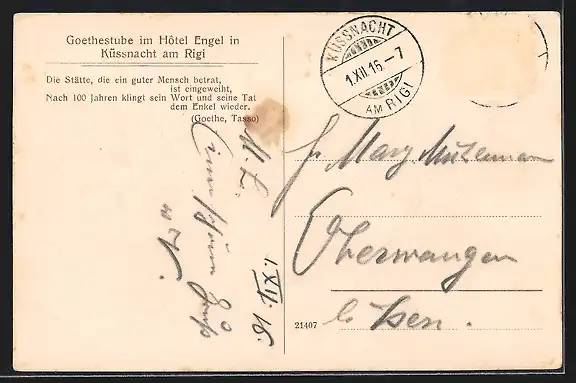 Goethestube im Hôtel Engel in
Küssnacht am Rigi
Die Stätte, die ein guter Mensch betrat,
ist eingeweiht,
Nach 100 Jahren klingt sein Wort und seine Tat
dem Enkel wieder.
(Goethe, Tasso)
KÜSSNACHT
1.XII.16.-7
AM RIGI
M. L.
1. XII. 16.
Fr. Mary
Oberwangen
21407